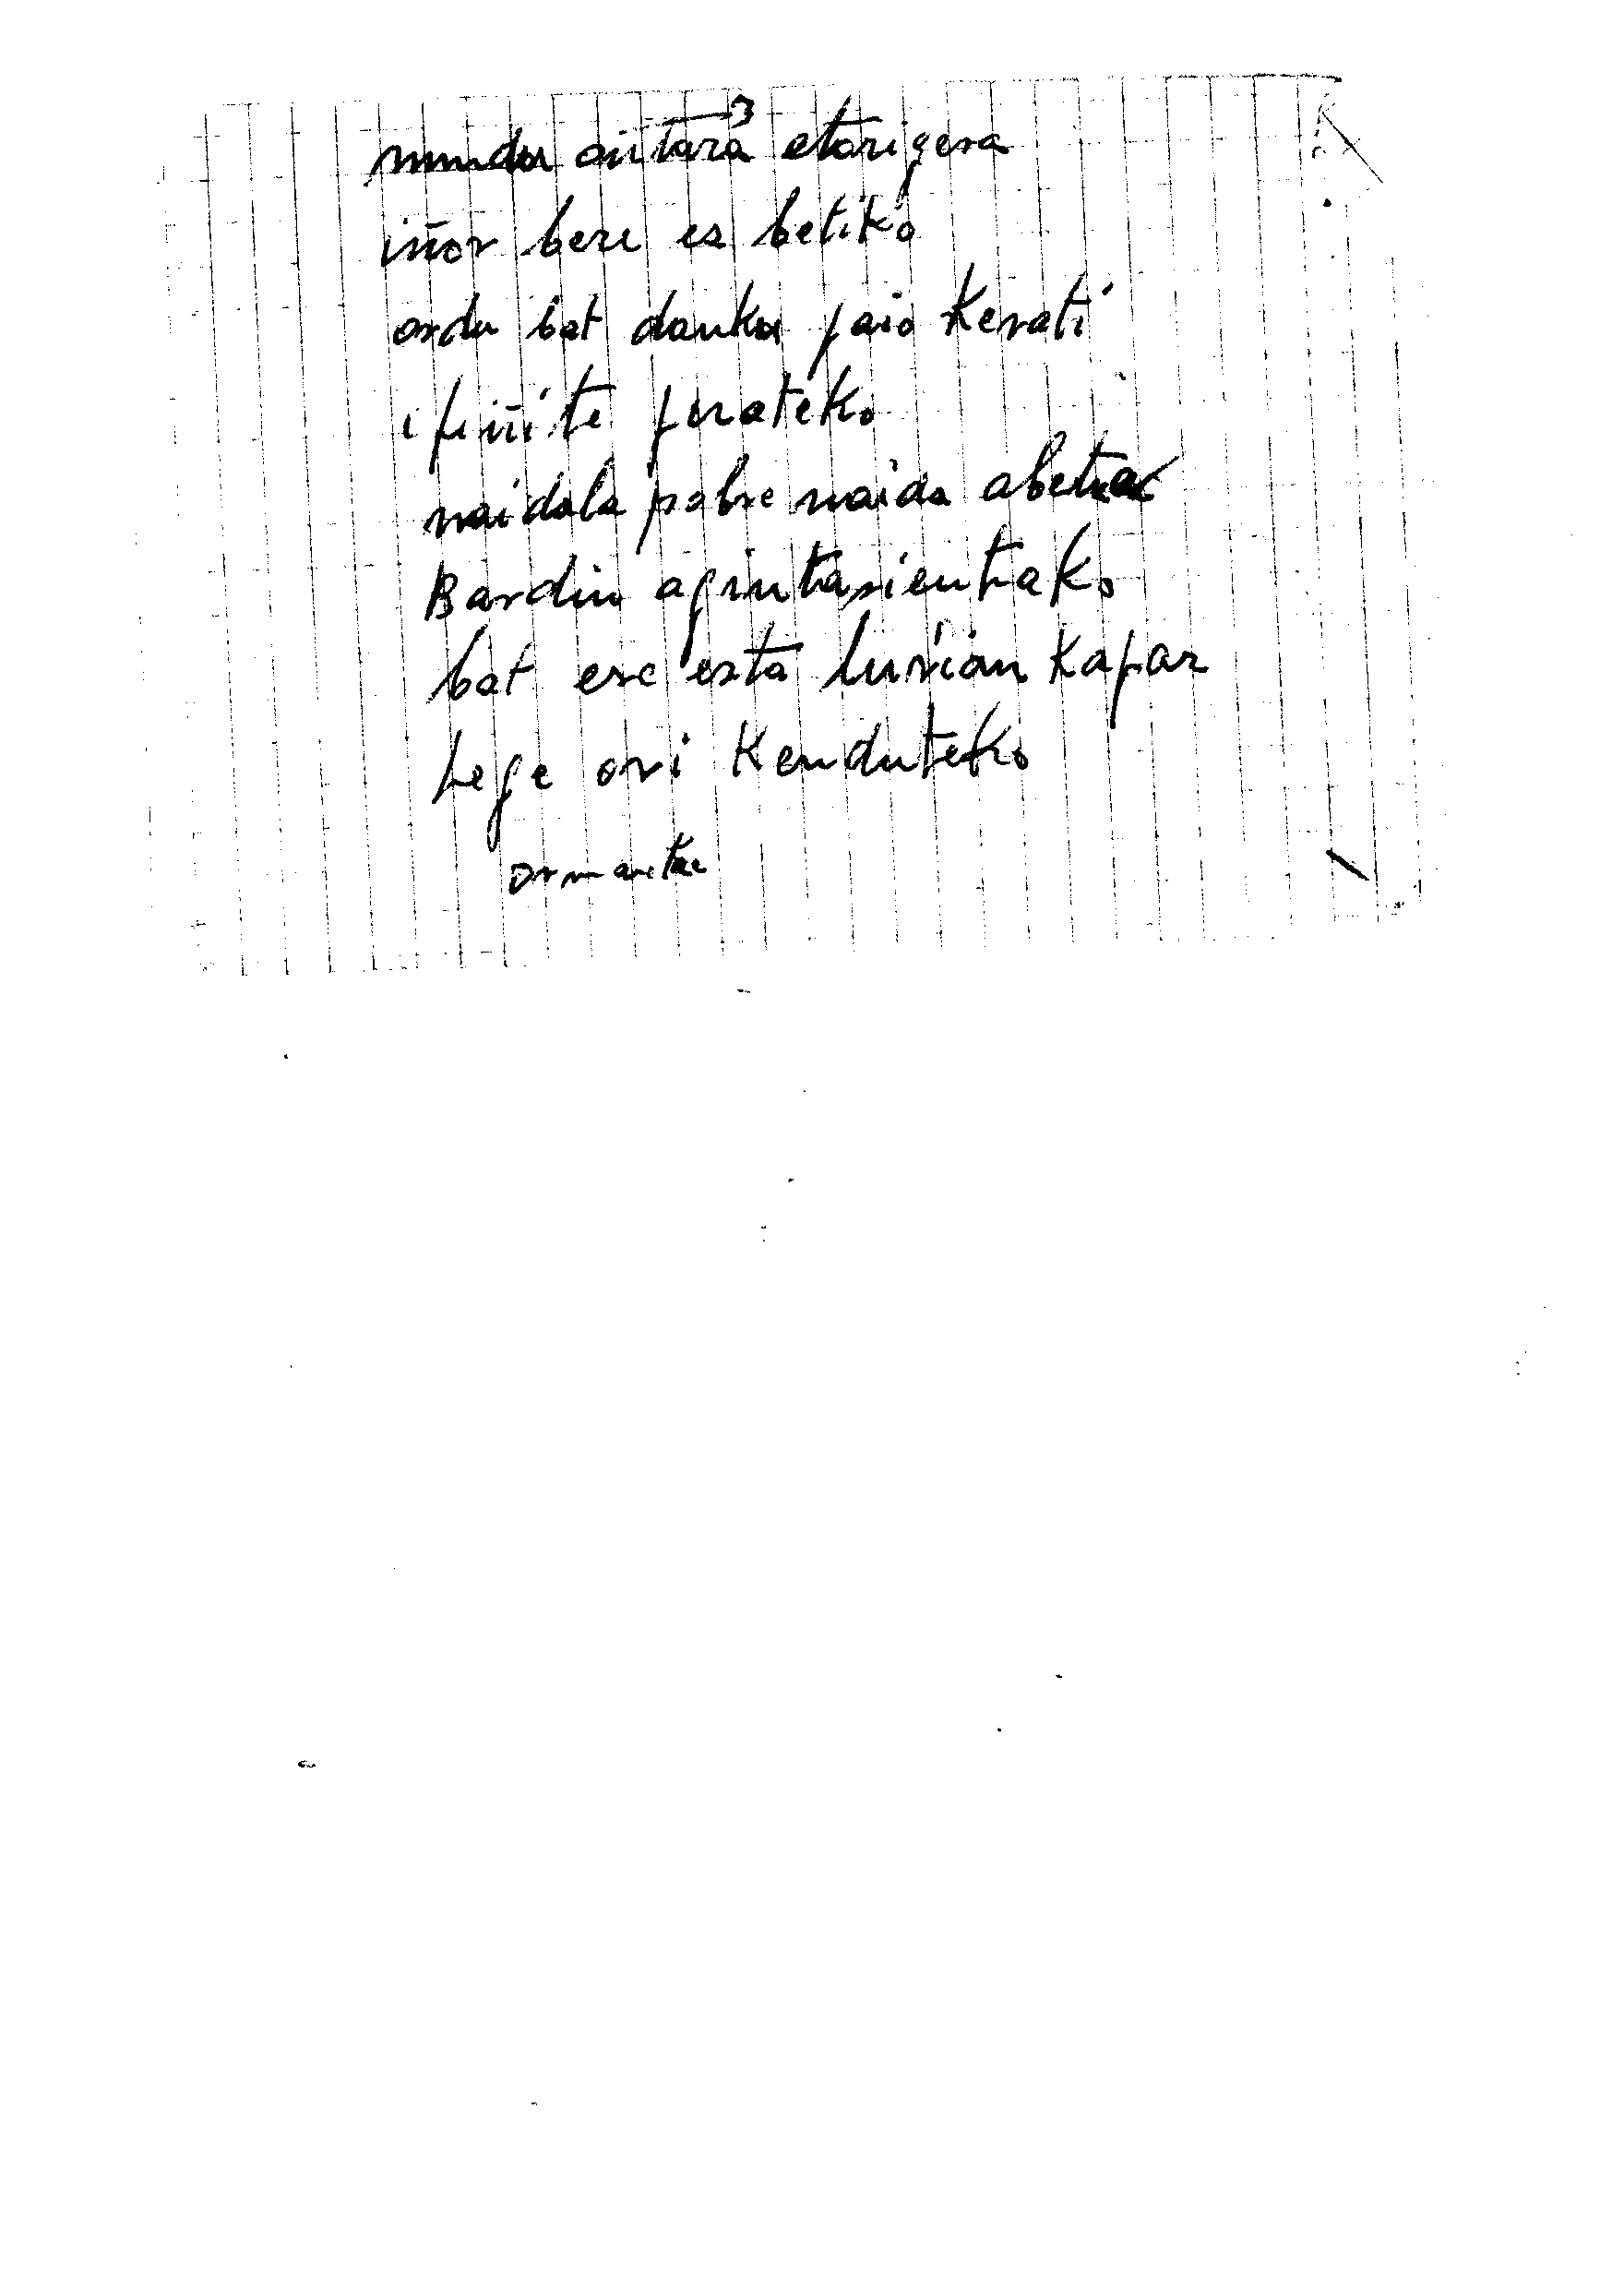 3
mundu ontara etorigera
iñor bere es betiko
ordu bat dauku jaio Kerati
ipiñite juateko
naidala pobre naida abetrac
Bardin agintasientzako
bat ere esta lurrian Kapaz
Lege ori Kenduteko